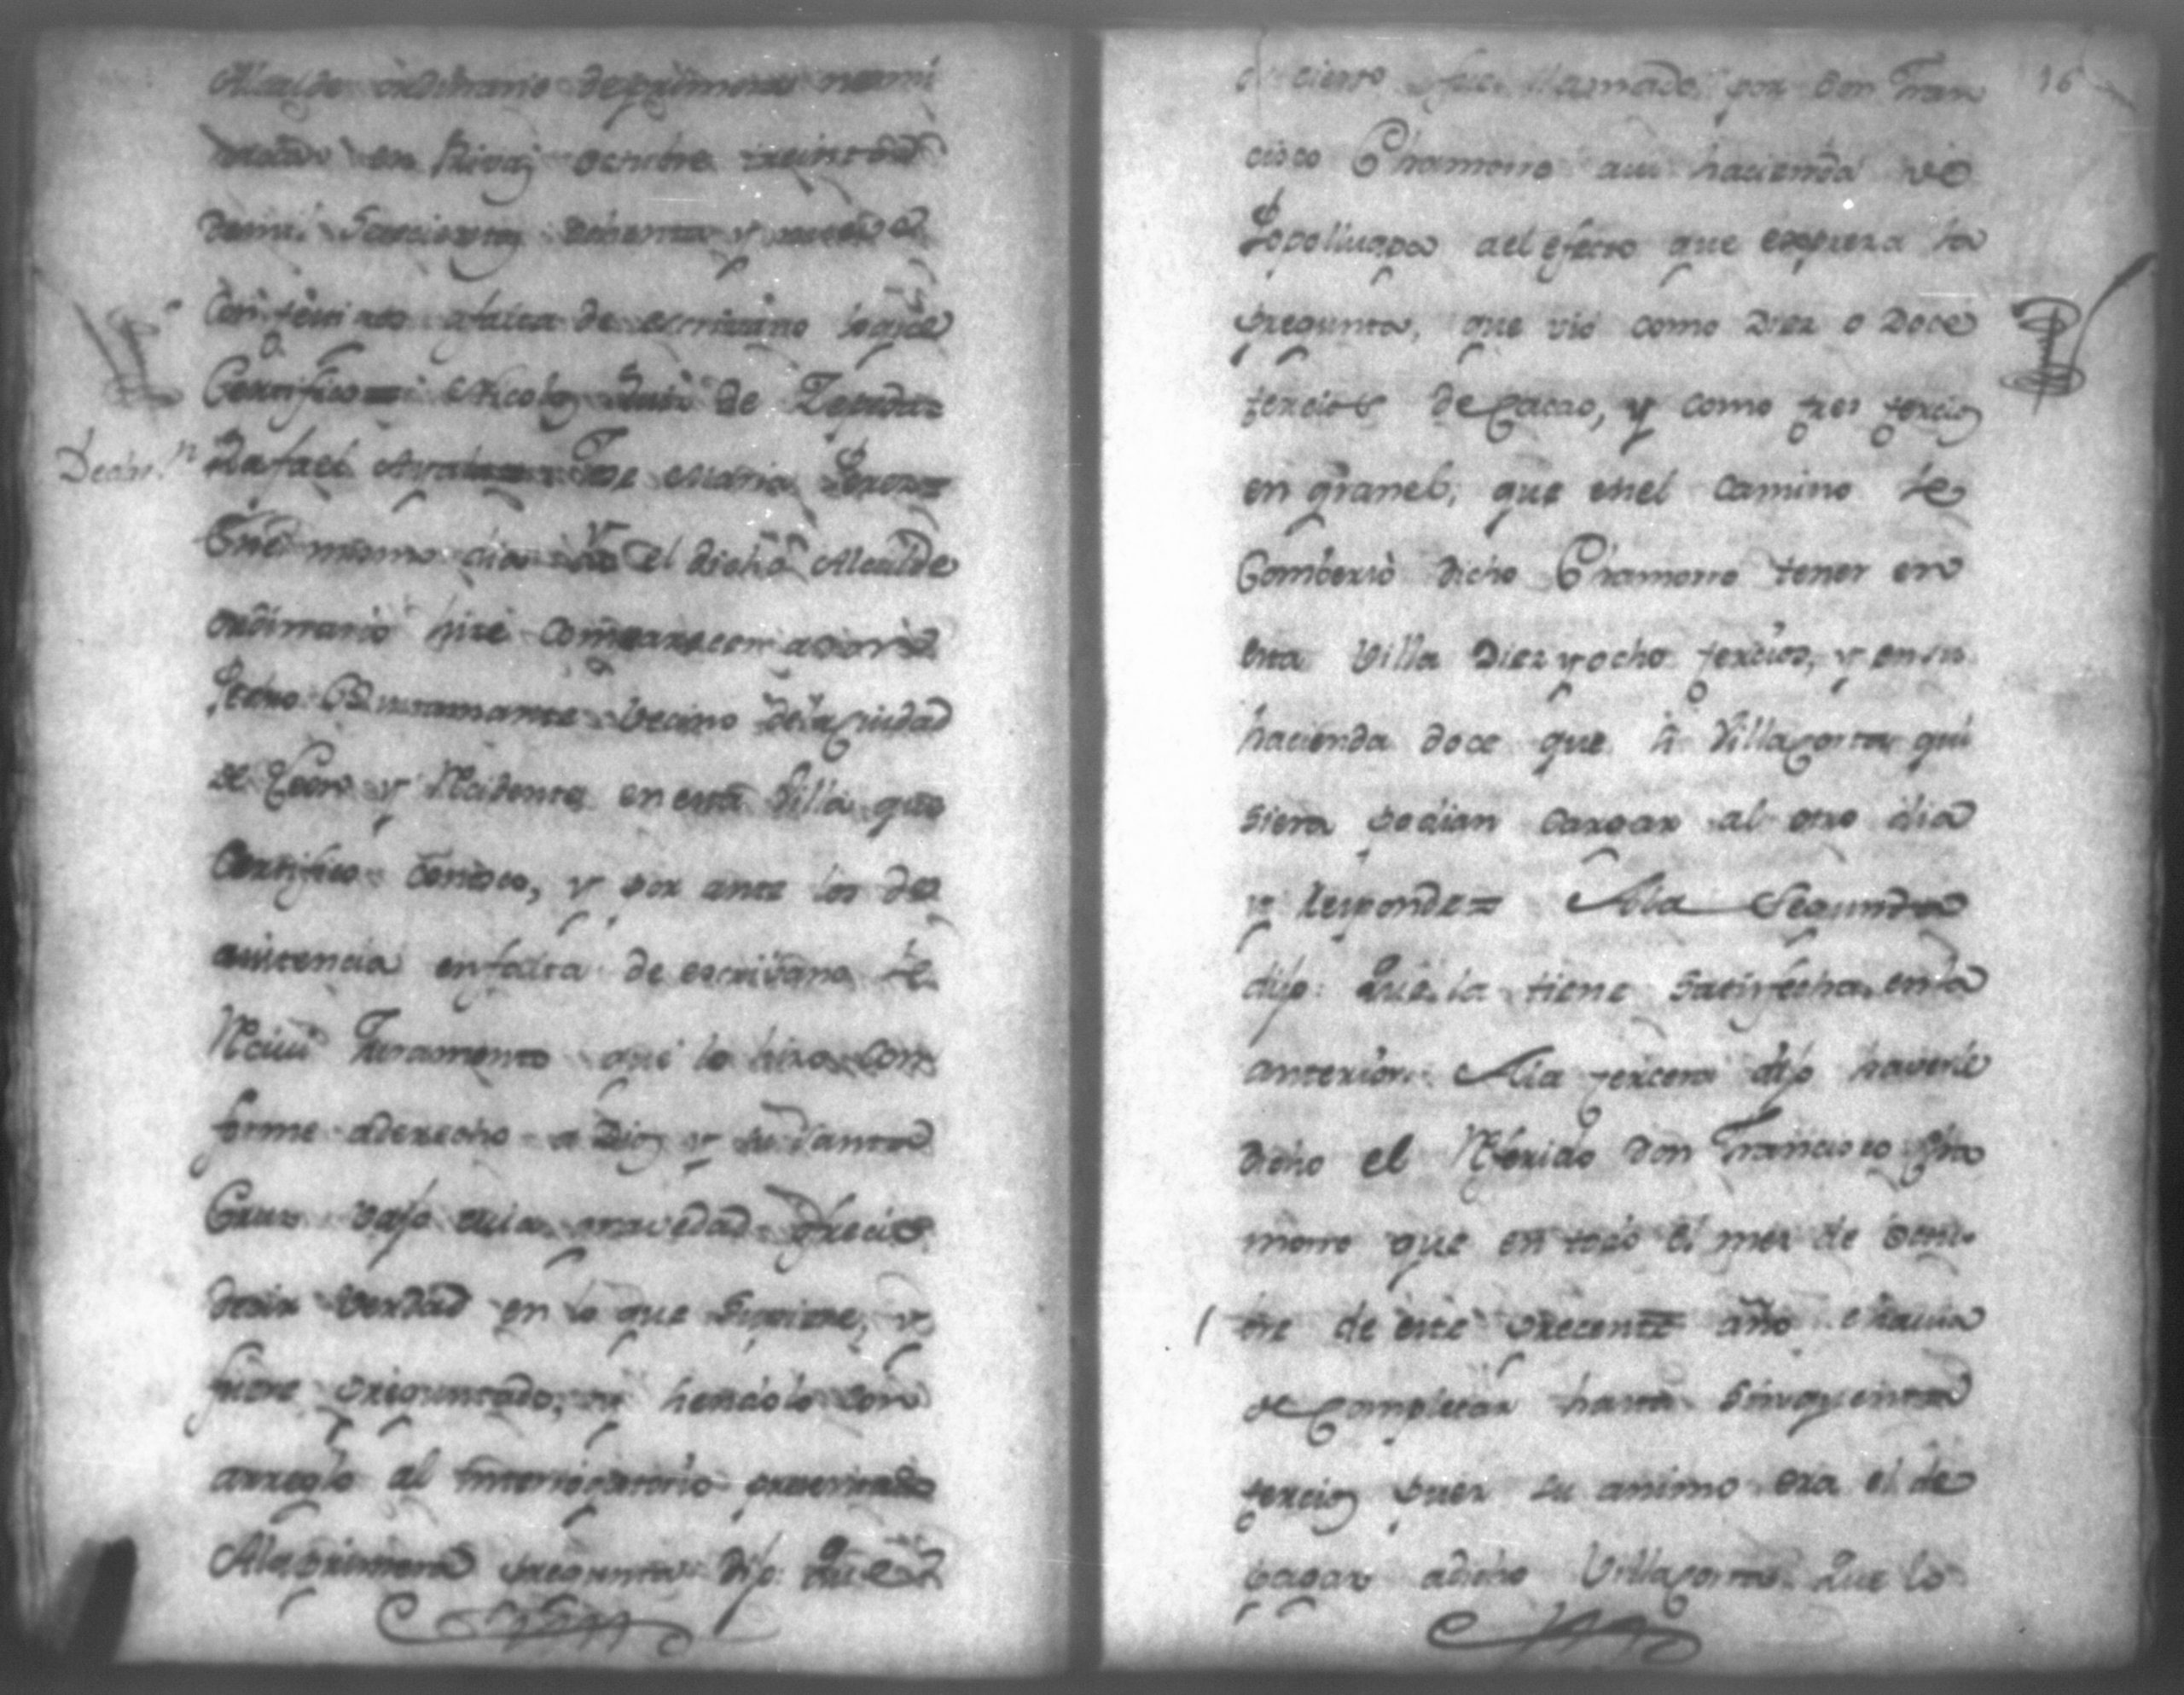 Alcalde ordinario de primeras nomi
en Rivas octubre treinta
de mil setecientos ochenta y nueve
con testigos a falta de escrivano lo que
Certifico = Nicolas Ruiz de Zepeda =
Declar.n
Rafael Jose Maria
En el mismo dia Yo el dicho Alcalde
ordinario hize comparecer a
Pedro Bustamante Vecino dela Ciudad
de Leon y Recidente en esta Villa que
Certifico conosco, y por ante los de
asistencia enfalta de escrivano le
Reciví Juramento que lo hizo con
forme aderecho a Dios y su Santa
Cruz vajo cuia gravedad ofrecio
desir verdad en lo que Supiere, y
fuere preguntado, y hendolo con
arreglo al Interrogatorio presentado
Ala primera pregunta dijo: Que es
16
cierto fue llamado por don Fran
cisco Chamorro a su hacienda de
Popolluapa ael efecto que espreza la
pregunta, que vio como Diez o Doce
tercios de Cacao, y como tres tercios
en granel; que enel camino le
Comberió dicho Chamorro tener en
esta Villa Diez y ocho tercios, y en su
hacienda doce que si Villacorta qui
siera podian cargar al otro dia
y Responde = Ala Segunda
dijo: Que la tiene satisfecha en la
anterior. Ala tercera dijo haverle
dicho el Referido don Francisco Cha
morro que en todo el mes de Octu
bre de este precente año havia
de completar hasta Sinquenta
tercios pues su animo era el de
pagar adicho Villacorta. Que lo